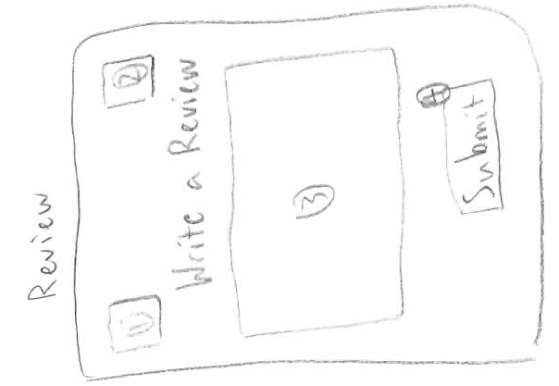 Review
1 2
Write a Review
3
4
Submit